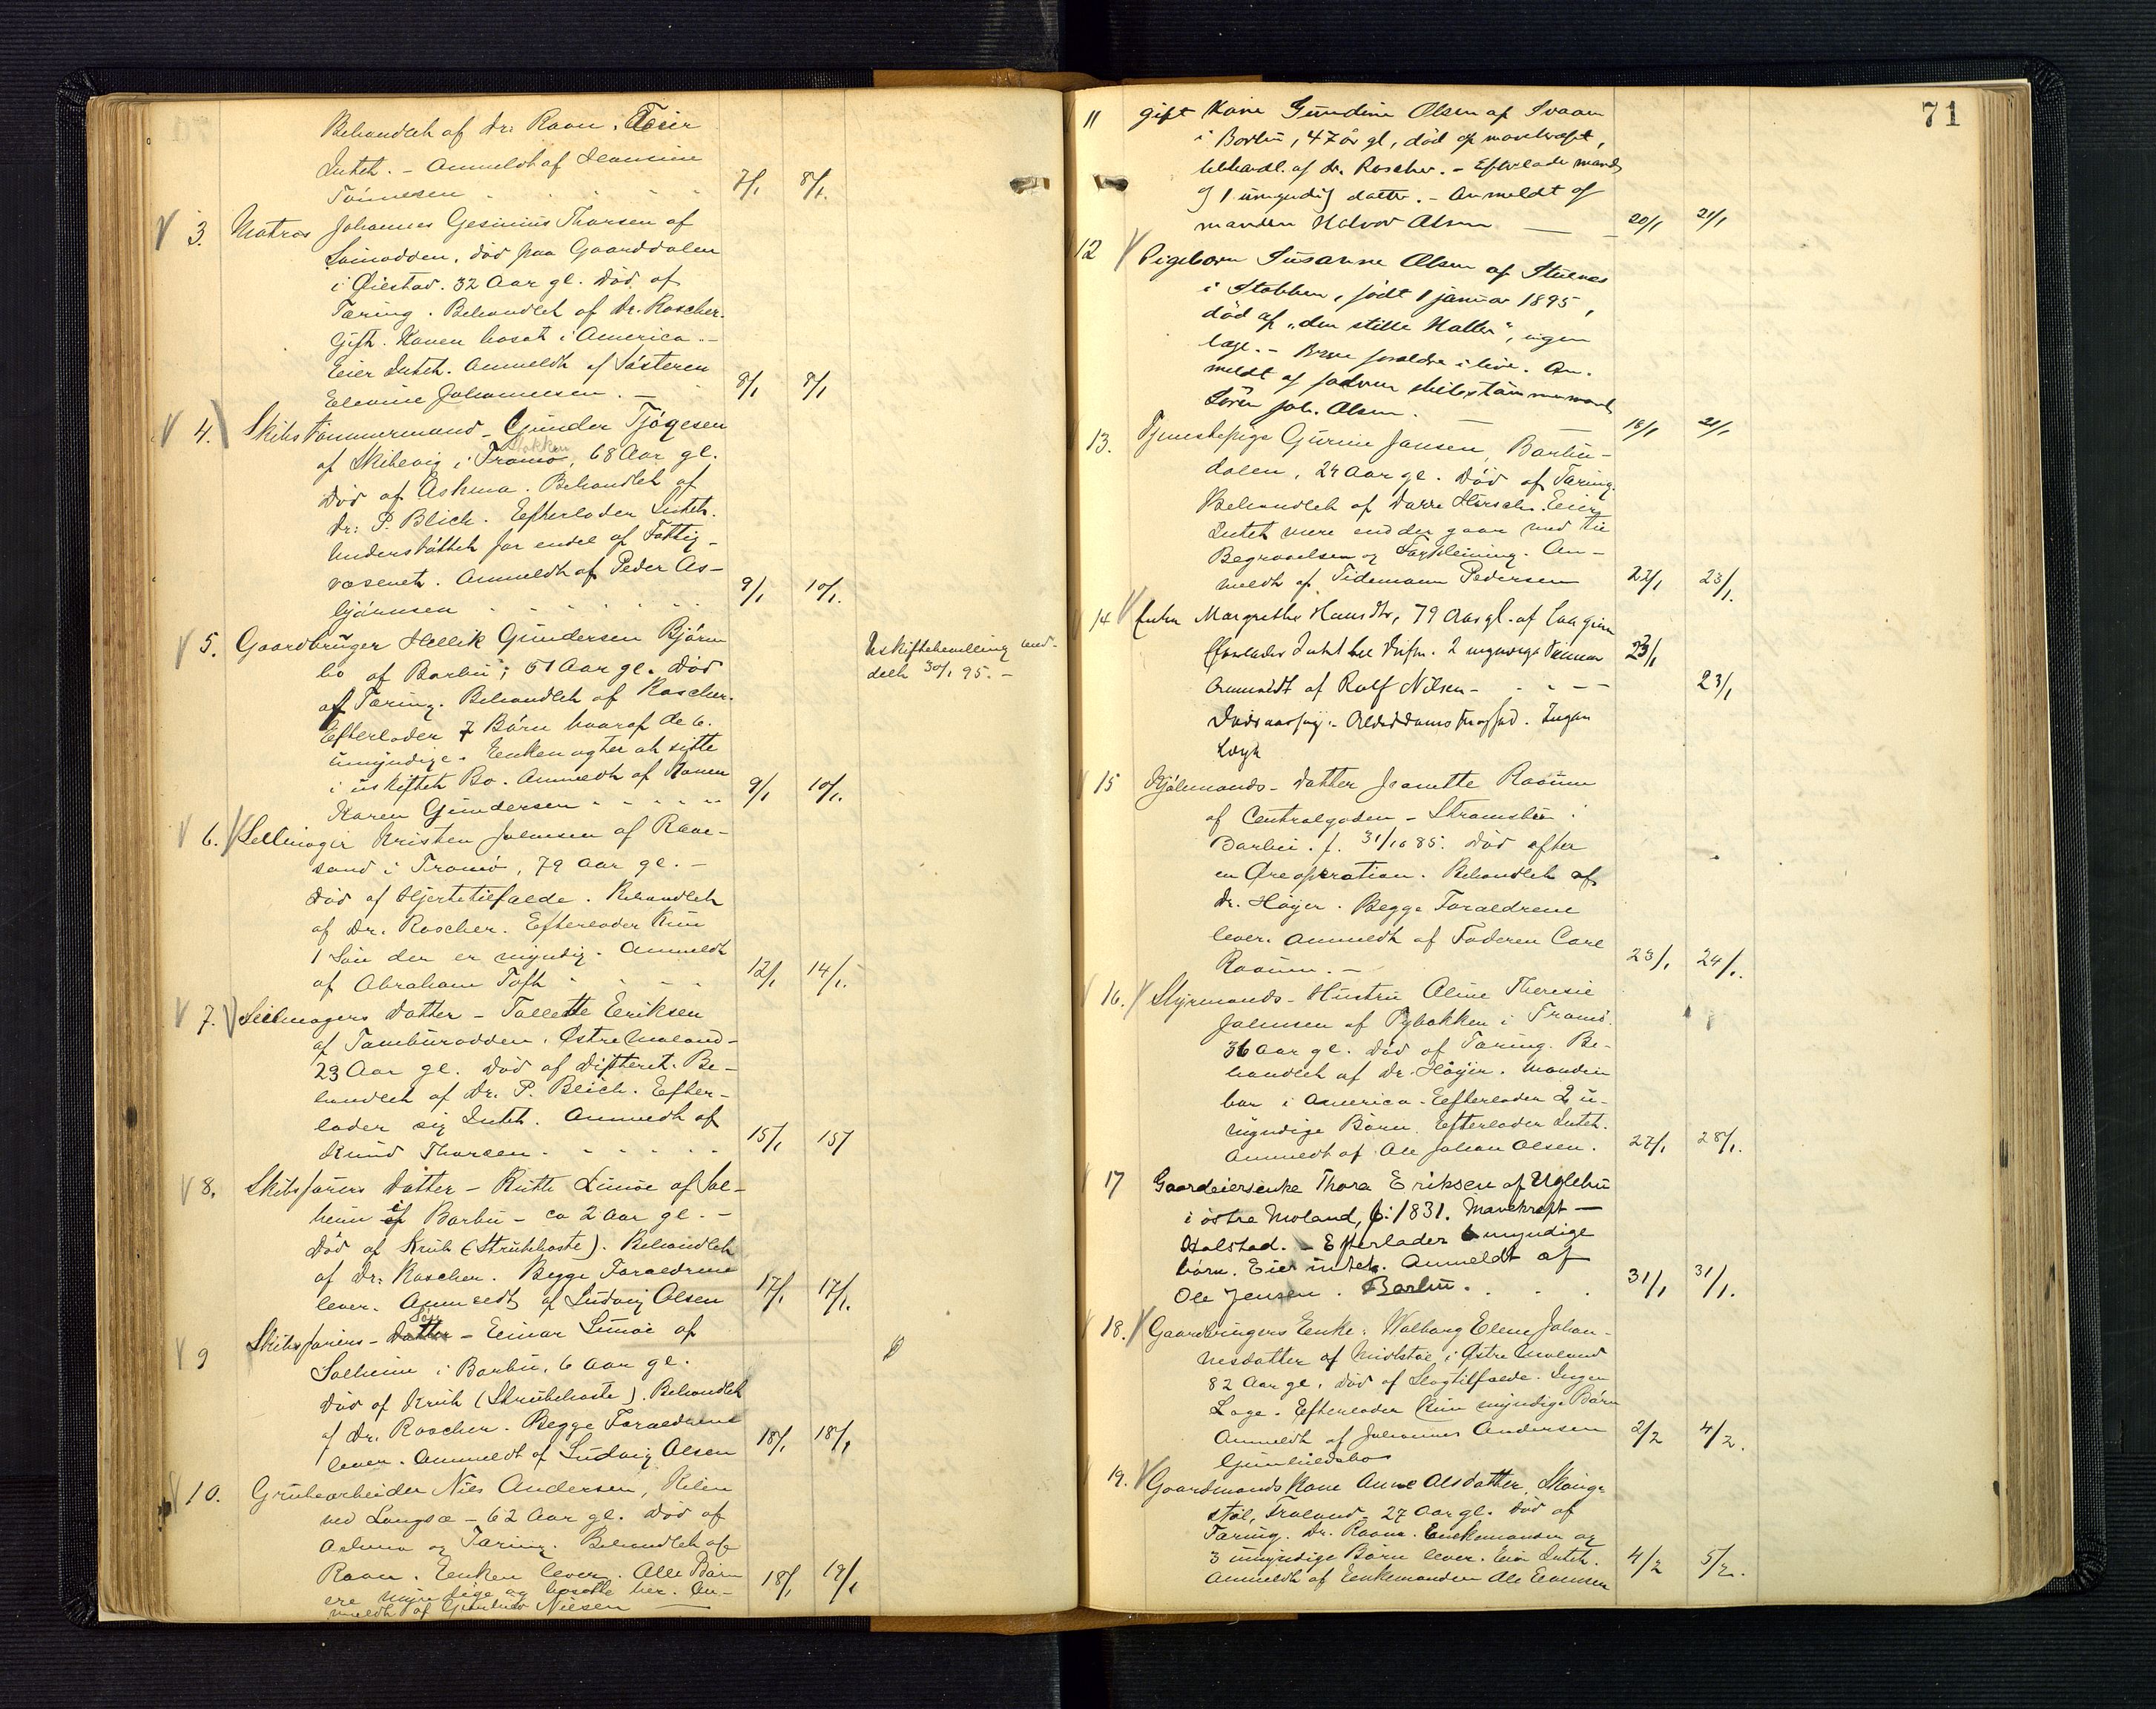 Behandlet af Dr. Raan. Eeier
Intet. - Anmeldt af Jeansine
Tönnesen 7/1 8/1.
3. Matros Johannes Gesinius Thorsen af
Sömodden, död paa Gaarddalen
i Øiestad. 32 Aar gl. Död af
Tæring. Behandlet af Dr. Roscher.
Gift. Konen bosat i America. -
Eeier Intet. Anmeldt af Søsteren
Elevine Johannesen. - 8/1 8/1
4. Skibstømmermand - Gunder Tjögesen
Stokken
af Skilsvig i Tromö, 68 Aar gl.
Död af Astma. Behandlet af
Dr: P. Blich. Efterlader Intet.
Understöttet for endel af Fattig-
væsenet. Anmeldt af Peder As-
björnsen 9/1 10/1.
5. Gaardbruger Hellik Gundersen Björn
bo af Barbu; 51 Aar gl. Död
af Tæring. Behandlet af Roscher.
Efterlader 7 Börn hvoraf de 6.
umyndige. Enken agter at sitte
i uskiftet Bo. Anmeldt af Konen
Karen Gundersen 9/1 10/1.
Uskiftebevilling med-
delt 30/1 95. -
6. Seilmager Kristen Johnsen af Rave-
sand i Tromö, 79 Aar gl. -
Död af Hjertetilfælde. Behandlet
af Dr. Roscher. Efterlader Kun
1 Sön der er myndig. Anmeldt
af Abraham Toft 12/1 14/1.
7. Seilmagers Datter - Tallette Eriksen
af Tambürodden, Østre Moland -
23 Aar gl. Död af Difteret. Be-
handlet af Dr. P. Blich. Efter-
lader sig Intet. Anmeldt af
Knud Thorsen. 15/1 15/
8. Skibsförers Datter - Ruth Limoe af Sol-
heim i Barbu - ca 2 Aar gl. -
Död af Krub (Strubehoste). Behandlet
af Dr. Roscher. Begge Forældrene
lever. Anmeldt af Ludvig Olsen 17/1 17/1.
Sön
9 Skibsförers - Datter - Einar Limoe af
Solheim i Barbu, 6 Aar gl.
Död af Krub (Strubehoste). Behandlet
af Dr. Roscher. Begge Forældrene
lever. Anmeldt af Ludvig Olsen 18/1 18/1
10. Grubearbeider Niels Andersen, Kilen
ved Langsæ - 62 Aar gl. Död af
Astma og Tæring. Behandlet af
Raan. Enken lever. Alle Börn
ere myndige og bosatte her. An-
meldt af Gunhild Nielsen 18/1 19/1
71
11 Gift Kone Gundine Olsen af Svaan
i Barbu, 47 år gl, död af mavekræft,
behandl. af dr. Roscher. - Efterlader mand
og 1 umyndig datter. - Anmeldt af
manden Halvor Olsen 20/1 21/1
12 Pigebarn Susanne Olsen af Stuenes
i Stokken, födt 1 januar 1895,
död af "den stille Halter", ingen
læge. - Begge forældre i live. An-
meldt af faderen skibstömmermand
Sören Joh. Olsen. 18/1 21/1
13. Tjenestepige Gurine Jansen, Barbu-
dalen, 24 Aar gl. Död af Tæring.
Behandlet af Dorre Hirsch. Eeier
Intet mere end der gaar med til
Begravelsen og Sygepleining. An-
meldt af Tidemann Pedersen 22/1 23/1.
14 Enke Margrethe Hansdtr, 79 Aar gl. af
Efterlader Intet 2 myndige 23/1
Anmeldt af Rolf Nilsen - 23/1
Dödsaarsag - Alderdomssvaghed. Ingen
Læge
15 Hjulmands - Datter Jeanette Raaum
af Centralgaden - Strømsbu i
Barbu. f. 31/10 85. Död efter
en Øreoperation. Behandlet af
Dr. Höyer. Begge Forældrene
lever. Anmeldt af Faderen Carl
Raaum. - 23/1 24/1.
16. Styrmands - Hustru Aline Theresie
Johnsen af Pybakken i Tromö.
36 Aar gl. Död af Tæring. Be-
handlet af Dr. Höyer. Manden
bor i America. Efterlader 2 u-
myndige Börn. Efterlader Intet.
Anmeldt af Ole Johan Olsen. 27/1 28/1.
17 Gaardeiersenke Thora Eriksen af Uglebu
i østre Moland, f: 1831. Mavekræft -
Halstad. - Efterlader 6 myndige
börn. Eier intet. Anmeldt af
Ole Jensen. Barbu. 31/1 31/1.
18. Gaardbrugers Enke: Walborg Elene Johan-
nesdatter af Midtstøl i Østre Moland
82 Aar gl. Död af Slagtilfælde. Ingen
Læge. Efterlader Kun myndige Börn
Anmeldt af Johannes Andersen 2/2 4/2.
Gunhildsbo
19. Gaardmands Kone Anne Olsdatter, Skomge-
støl, Froland - 27 Aar gl. Död af
Tæring. Dr. Raan. Enkemanden og
3 umyndige Börn lever. Eeier Intet.
Anmeldt af Enkemanden Ole Evensen 4/2 5/2.